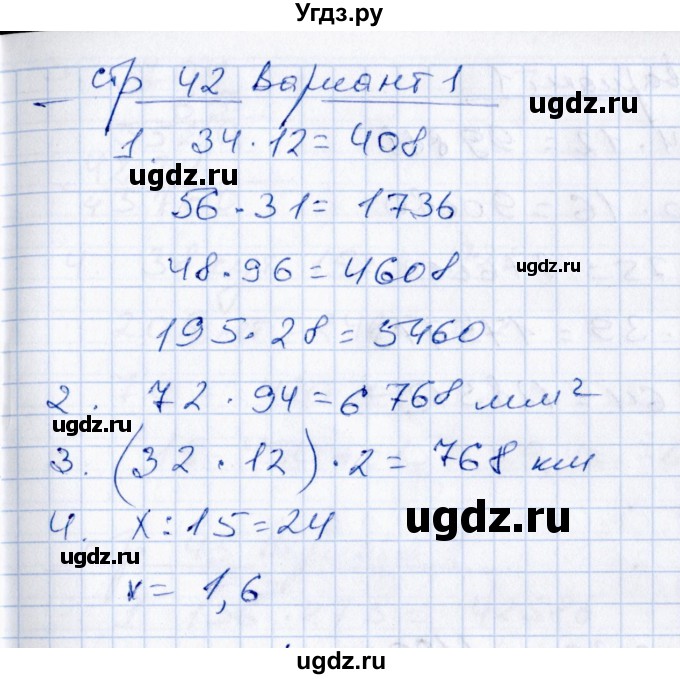 Угдз.ру
стр 42 Вариант 1
1. 34 · 12 = 408
ugdz.ru ugdz.ru
56 · 31 = 1736
48 · 96 = 4608
ugdz.ru ugdz.ru
195 · 28 = 5460
2. 72 · 94 = 6 768 мм²
ugdz.ru
3. (32 · 12) · 2 = 768 км
4. x : 15 = 24
ugdz.ru
x = 1,6
ugdz.ru